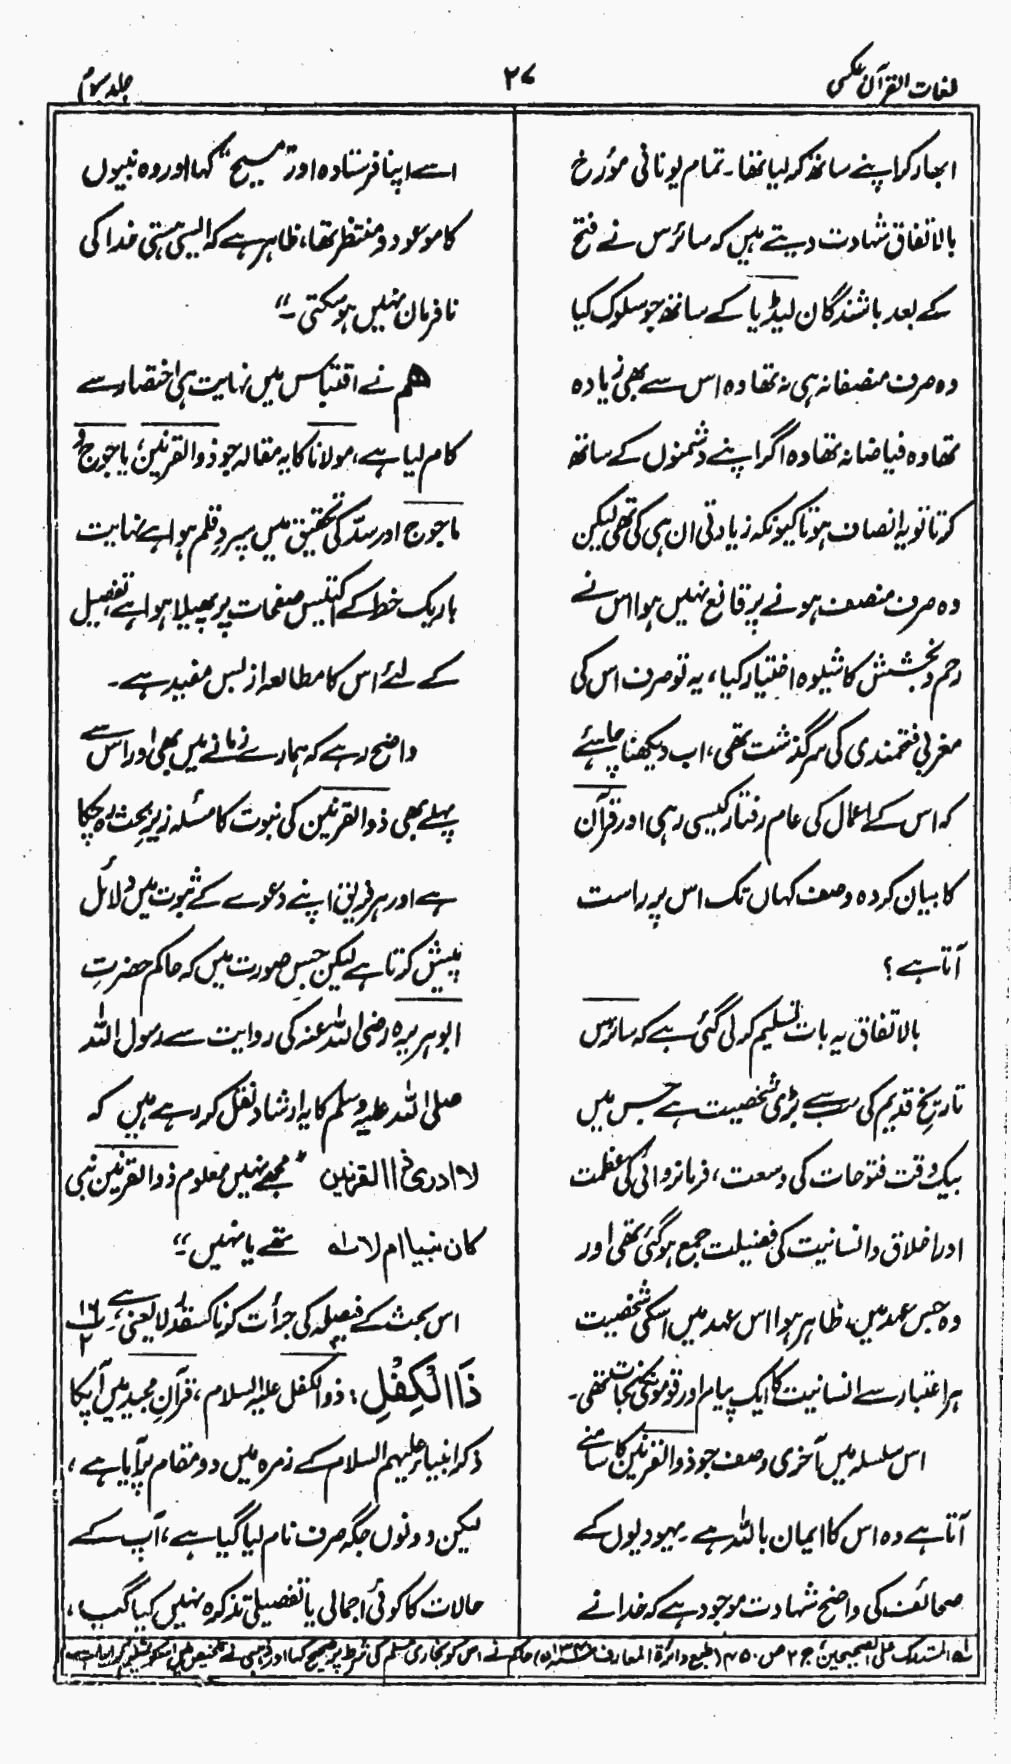 لغات القرآن عکسی
۲۷
جلد سوم
ابھار کر اپنے ساتھ کر لیا تھا۔ تمام یونانی مؤرخ
بالاتفاق شہادت دیتے ہیں کہ سائرس نے فتح
کے بعد باشندگان لیڈیا کے ساتھ جو سلوک کیا
وہ صرف منصفانہ ہی نہ تھا وہ اس سے بھی زیادہ
تھا وہ فیاضانہ تھا وہ اگر اپنے دشمنوں کے ساتھ
کرتا تو یہ انصاف ہوتا کیونکہ زیادتی ان ہی کی تھی لیکن
وہ صرف منصف ہونے پر قانع نہیں ہوا اس نے
رحم و بخشش کا شیوہ اختیار کیا، یہ تو صرف اس کی
مغربی فتحمندی کی سرگذشت تھی، اب دیکھنا چاہئے
کہ اس کے اعمال کی عام رفتار کیسی رہی اور قرآن
کا بیان کردہ وصف کہاں تک اس پر راست
آتا ہے؟
بالاتفاق یہ بات تسلیم کر لی گئی ہے کہ سائرس
تاریخ قدیم کی سب سے بڑی شخصیت ہے جس میں
بیک وقت فتوحات کی وسعت، فرمانروائی کی عظمت
اور اخلاق و انسانیت کی فضیلت جمع ہو گئی تھی اور
وہ جس عہد میں ظاہر ہوا اس عہد میں اسکی شخصیت
ہر اعتبار سے انسانیت کا ایک پیام اور قوموں کی نجات تھی۔
اس سلسلہ میں آخری وصف جو ذوالقرنین کا سامنے
آتا ہے وہ اس کا ایمان باللہ ہے۔ یہودیوں کے
صحائف کی واضح شہادت موجود ہے کہ خدا نے
اسے اپنا فرستادہ اور "مسیح" کہا اور وہ نبیوں
کا موعود و منتظر تھا، ظاہر ہے کہ ایسی ہستی خدا کی
نافرمان نہیں ہو سکتی۔"
ہم نے اقتباس میں نہایت ہی اختصار سے
کام لیا ہے، مولانا کا یہ مقالہ جو ذوالقرنین، یاجوج و
ماجوج اور سدّ کی تحقیق میں سپرد قلم ہوا ہے نہایت
باریک خط کے اکتیس صفحات پر پھیلا ہوا ہے تفصیل
کے لئے اس کا مطالعہ از بس مفید ہے۔
واضح رہے کہ ہمارے زمانے میں بھی اور اس سے
پہلے بھی ذوالقرنین کی نبوت کا مسئلہ زیر بحث رہ چکا
ہے اور ہر فریق اپنے دعوے کے ثبوت میں دلائل
پیش کرتا ہے لیکن جس صورت میں کہ حاکم حضرتِ
ابوہریرہ رضی اللہ عنہ کی روایت سے رسول اللہ
صلی اللہ علیہ وسلم کا یہ ارشاد نقل کر رہے ہیں کہ
لا ادری ذا القرنین "مجھے نہیں معلوم ذوالقرنین نبی
کان نبیا ام لا لہ تھے یا نہیں"
اس بحث کے فیصلہ کی جرأت کرنا کسقدر لایعنی ہے۔ ۱۶ ۲
ذَا الْكِفْلِ: ذوالکفل علیہ السلام، قرآنِ مجید میں آپکا
ذکر انبیاء علیہم السلام کے زمرہ میں دو مقام پر آیا ہے،
لیکن دونوں جگہ صرف نام لیا گیا ہے، آپ کے
حالات کا کوئی اجمالی یا تفصیلی تذکرہ نہیں کیا گیا،
لہ المستدرک علی الصحیحین، ج ۲ ص ۴۵۰ (طبع دائرۃ المعارف) حاکم نے اس کو بخاری مسلم کی شرط پر صحیح کہا اور ذہبی نے تلخیص میں اسکو